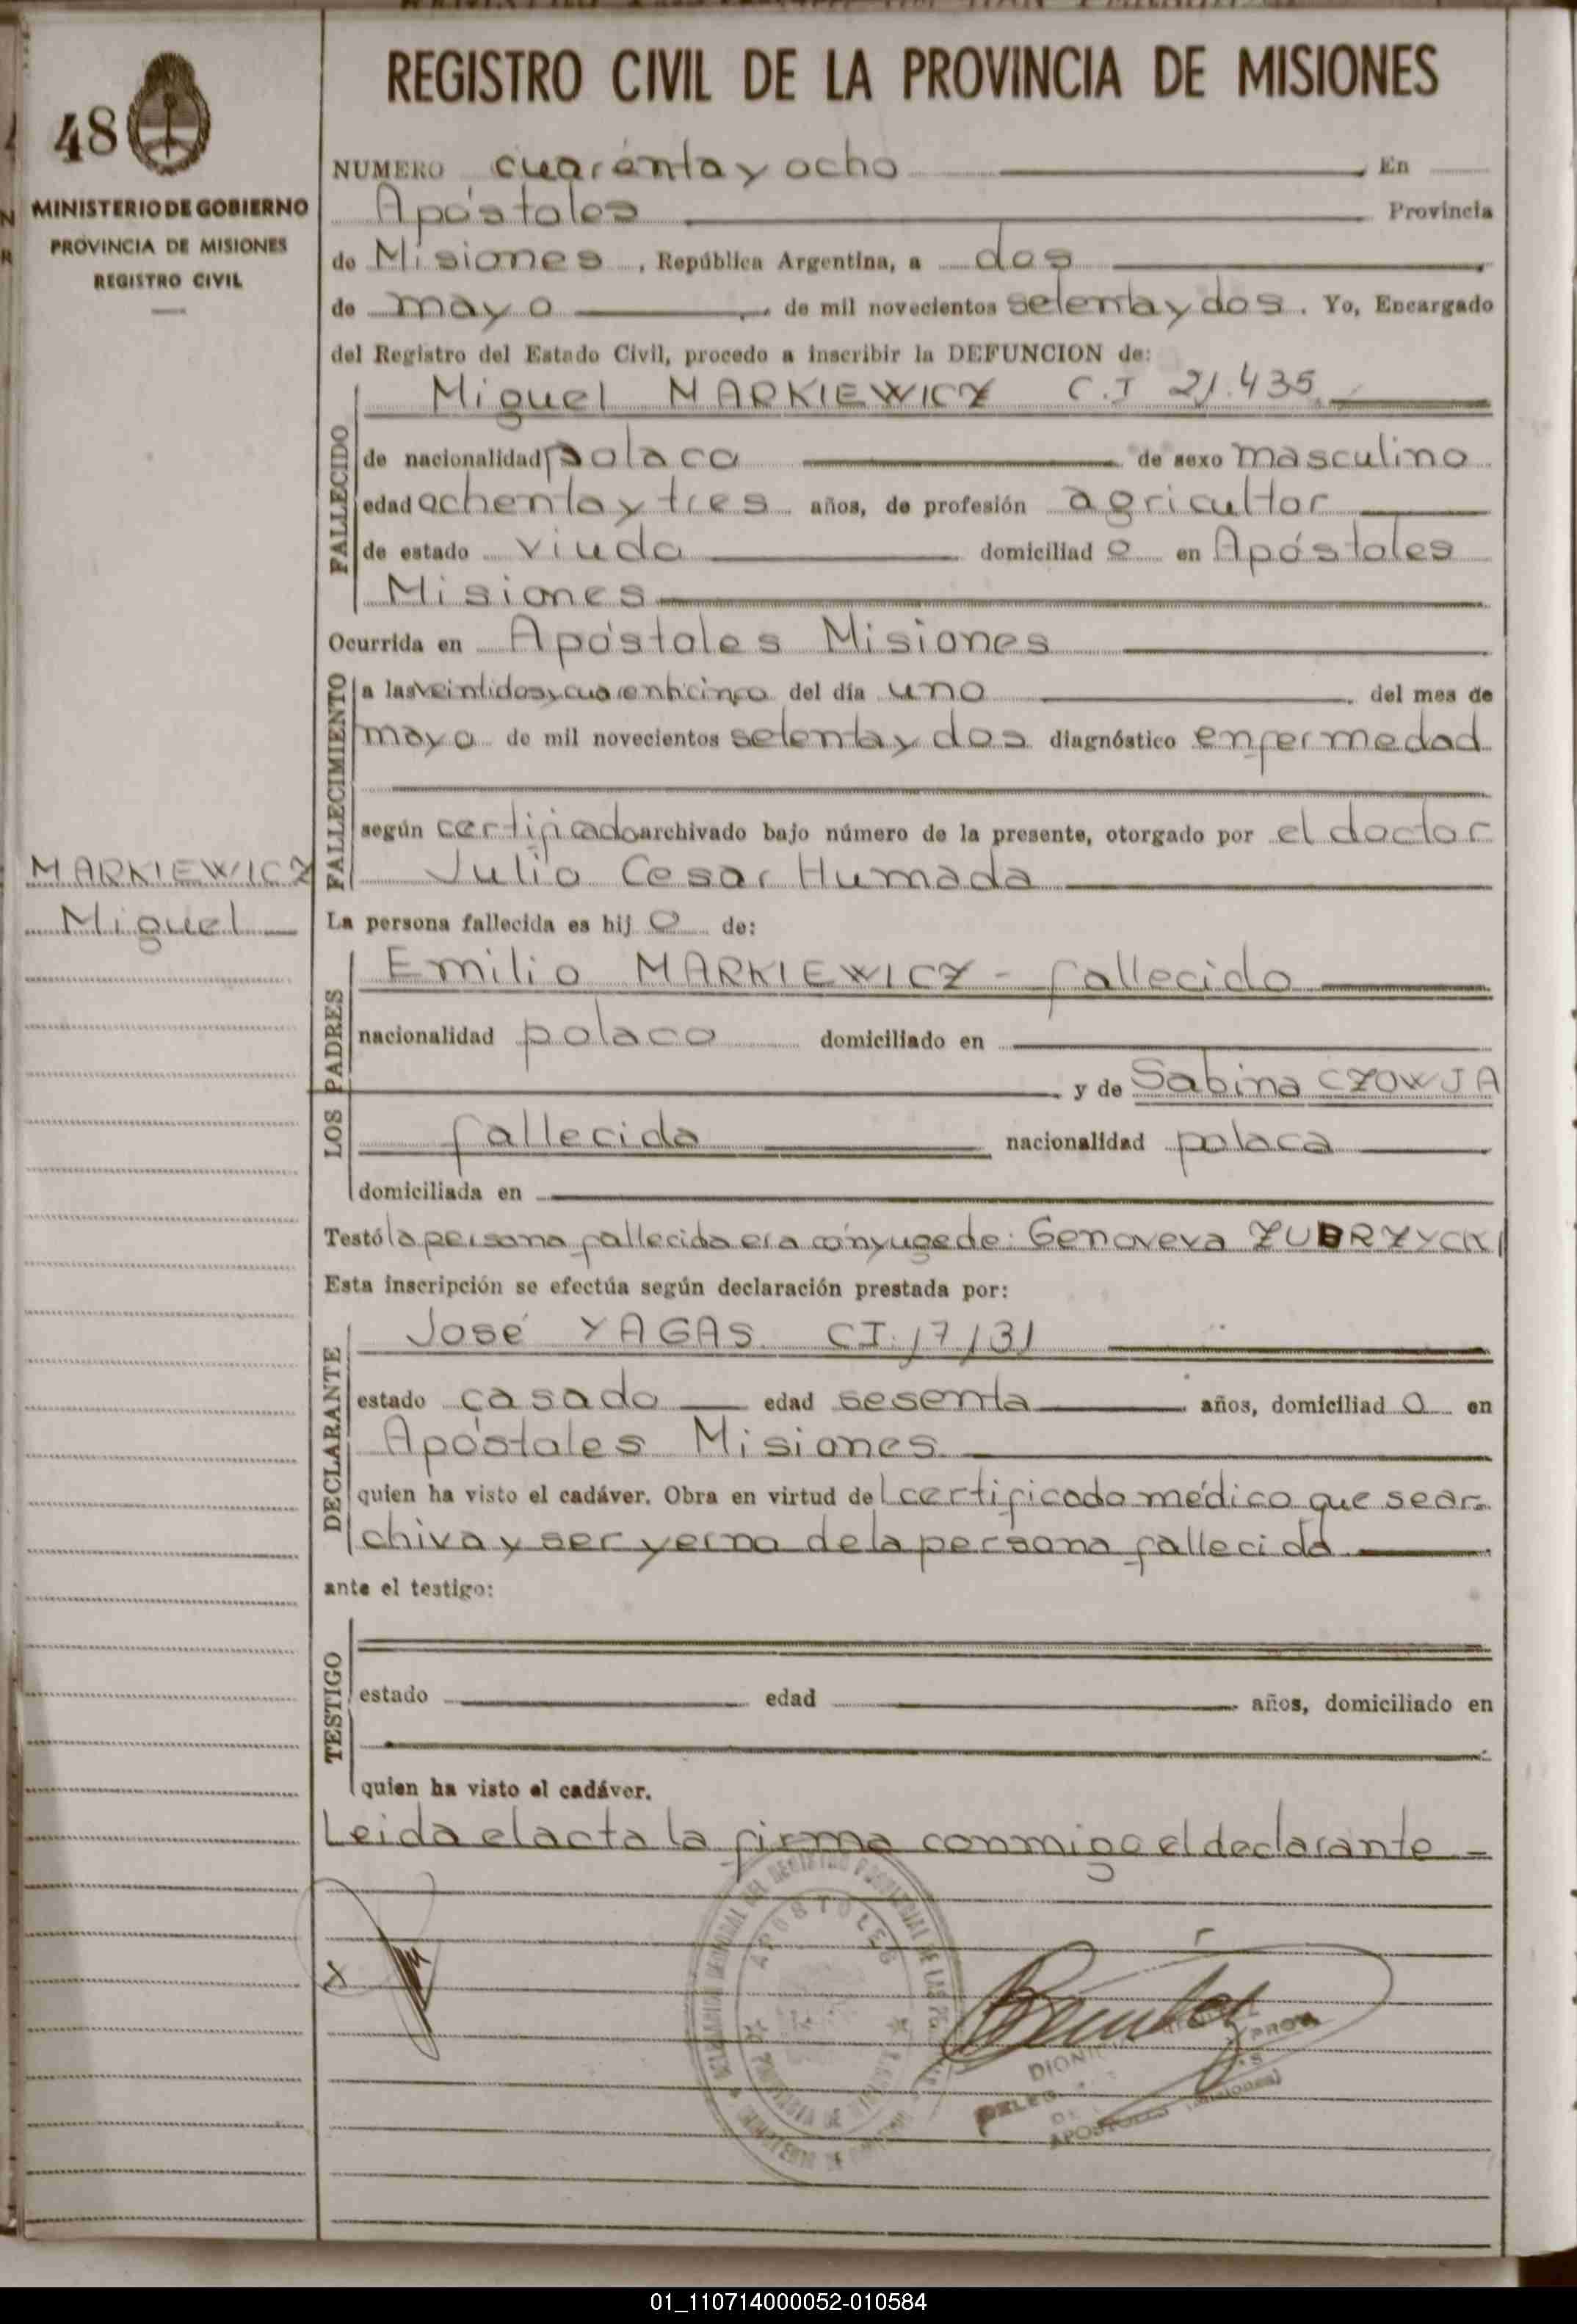 REGISTRO CIVIL DE LA PROVINCIA DE MISIONES
48
MINISTERIO DE GOBIERNO
PROVINCIA DE MISIONES
REGISTRO CIVIL
NUMERO cuarenta y ocho En
Apóstoles Provincia
de Misiones, República Argentina, a dos
de mayo, de mil novecientos setenta y dos. Yo, Encargado
del Registro del Estado Civil, procedo a inscribir la DEFUNCION de:
FALLECIDO
Miguel MARKIEWICZ C.I 21.435
de nacionalidad polaco de sexo masculino
edad ochenta y tres años, de profesión agricultor
de estado viudo domiciliad o en Apóstoles
Misiones
Ocurrida en Apóstoles Misiones
FALLECIMIENTO
a las veintidos y cuarenticinco del día uno del mes de
mayo de mil novecientos setenta y dos diagnóstico enfermedad
según certificado archivado bajo número de la presente, otorgado por el doctor
Julio Cesar Humada
MARKIEWICZ
Miguel
La persona fallecida es hij o de:
LOS PADRES
Emilio MARKIEWICZ - fallecido
nacionalidad polaco domiciliado en
y de Sabina CZOWJA
fallecida nacionalidad polaca
domiciliada en
Testó la persona fallecida era cónyuge de: Genoveva ZUBRZYCKI
Esta inscripción se efectúa según declaración prestada por:
DECLARANTE
José YAGAS CI. 17131
estado casado edad sesenta años, domiciliad o en
Apóstoles Misiones
quien ha visto el cadáver. Obra en virtud del certificado médico que se ar-
chiva y ser yerno de la persona fallecida
ante el testigo:
TESTIGO
estado edad años, domiciliado en
quien ha visto el cadáver.
Leida el acta la firma conmigo el declarante -
APOSTOLES
PROV.
DELEG
APOSTOLES (Misiones)
01_110714000052-010584